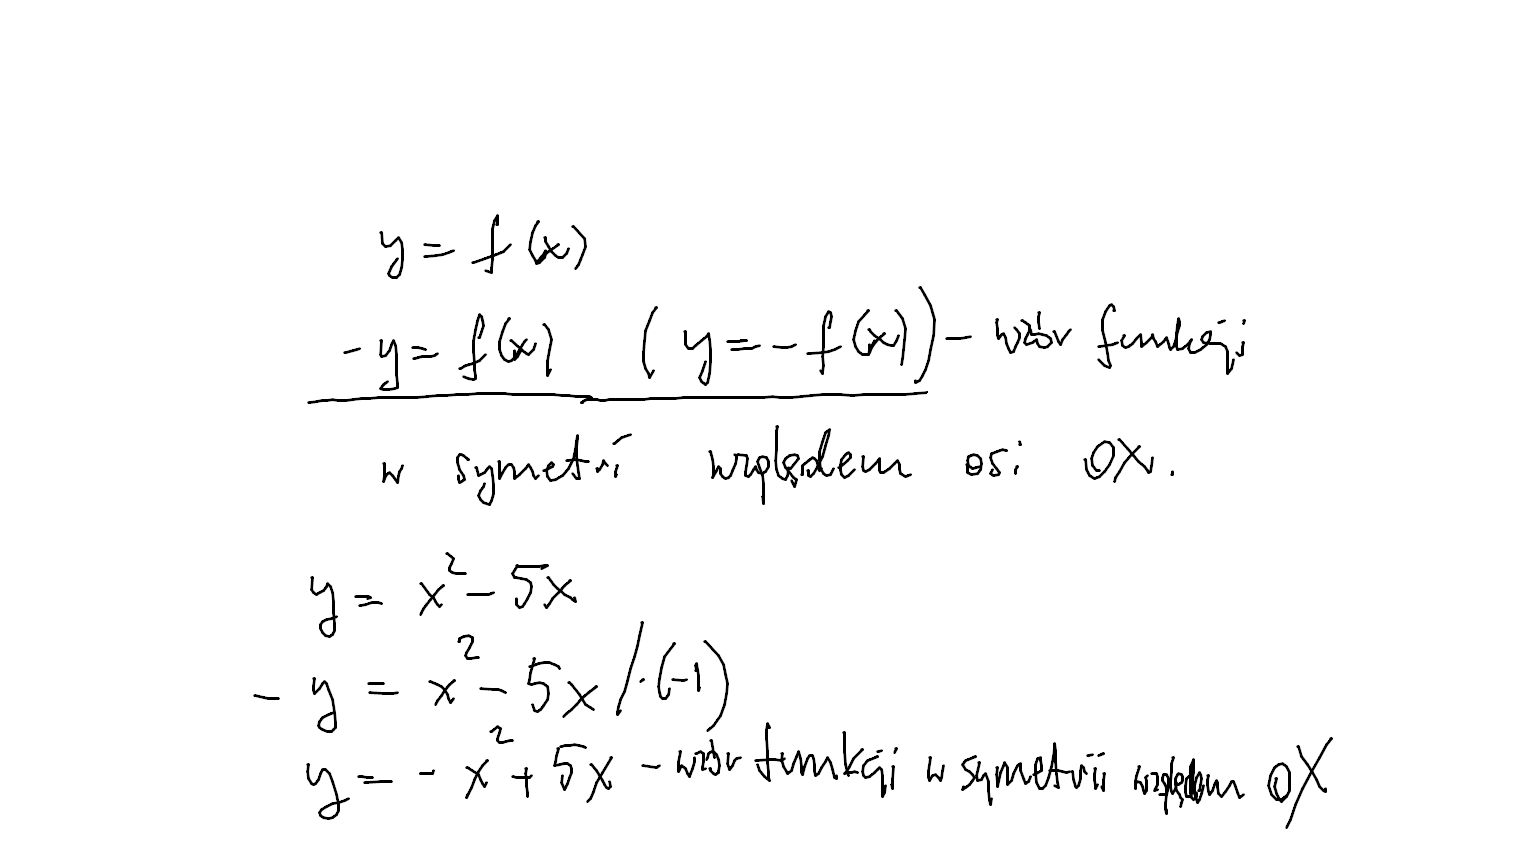 y = f(x)
- y = f(x) ( y = - f(x) ) - wzór funkcji
w symetrii względem osi OX.
y = x² - 5x
- y = x² - 5x / · (-1)
y = - x² + 5x - wzór funkcji w symetrii względem OX